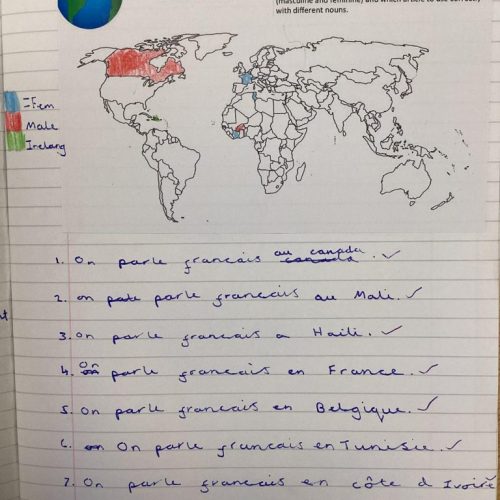 (masculine and feminine) and which article to use
with different nouns.
=Fem
Male
Irelang
1. On parle francais au canada ✓
2. on parle francais au Mali. ✓
3. on parle francais a Haili. ✓
4. On parle francais en France. ✓
5. On parle francais en Belgique. ✓
6. On parle francais en Tunisie. ✓
7. On parle francais en côte d Ivoire